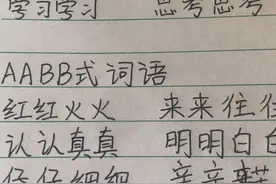 学习学习 思考思考
AABB式词语
红红火火 来来往往
认认真真 明明白白
仔仔细细 辛辛